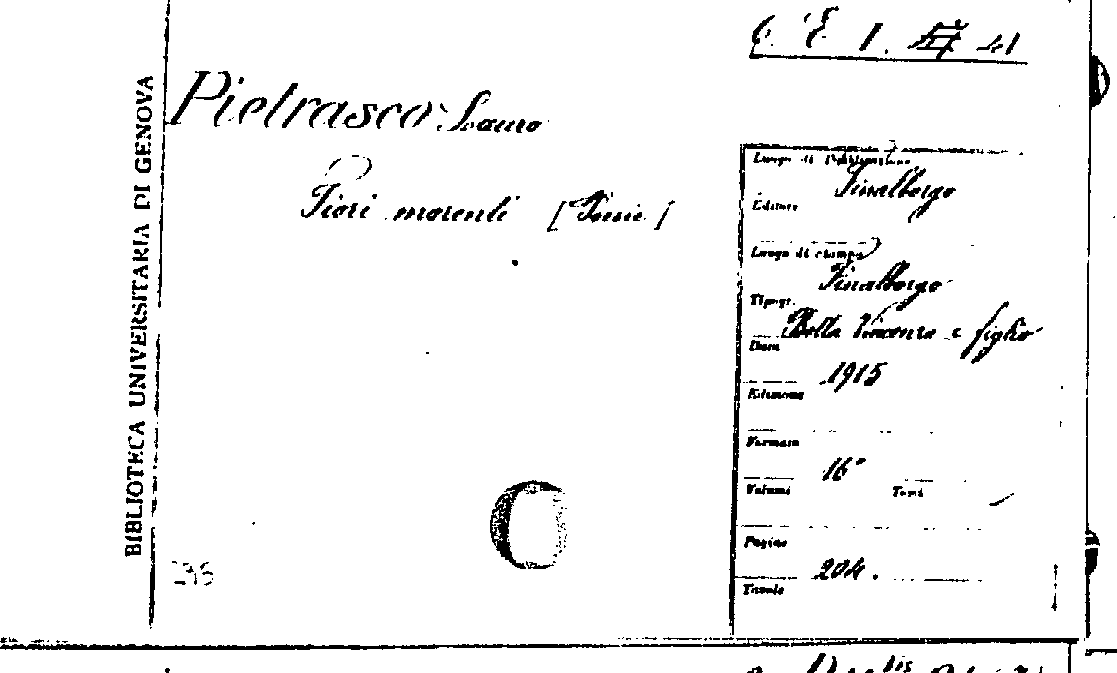 6. E I. 41
BIBLIOTECA UNIVERSITARIA DI GENOVA
Pietrasco Lauro
Fiori morenti [Poesie]
Luogo di Pubblicazione
Finalborgo
Editore
Luogo di stampa
Finalborgo
Tipogr.
Bolla Vincenzo e figlio
Data
1915
Edizione
Formato
16°
Volumi Tomi
Pagine
204.
Tavole